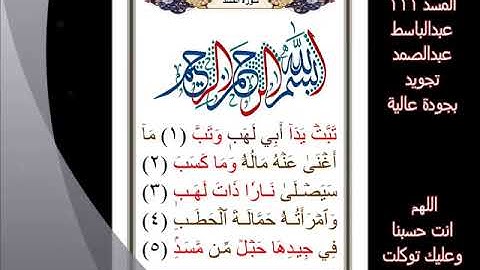 سورة المسد
بسم الله الرحمن الرحيم
تَبَّتْ يَدَآ أَبِي لَهَبٍ وَتَبَّ (١) مَآ
أَغْنَىٰ عَنْهُ مَالُهُ وَمَا كَسَبَ (٢)
سَيَصْلَىٰ نَارًا ذَاتَ لَهَبٍ (٣)
وَٱمْرَأَتُهُ حَمَّالَةَ ٱلْحَطَبِ (٤)
فِي جِيدِهَا حَبْلٌ مِّن مَّسَدٍ (٥)
المسد ١١١
عبدالباسط
عبدالصمد
تجويد
بجودة عالية
اللهم
انت حسبنا
وعليك توكلت